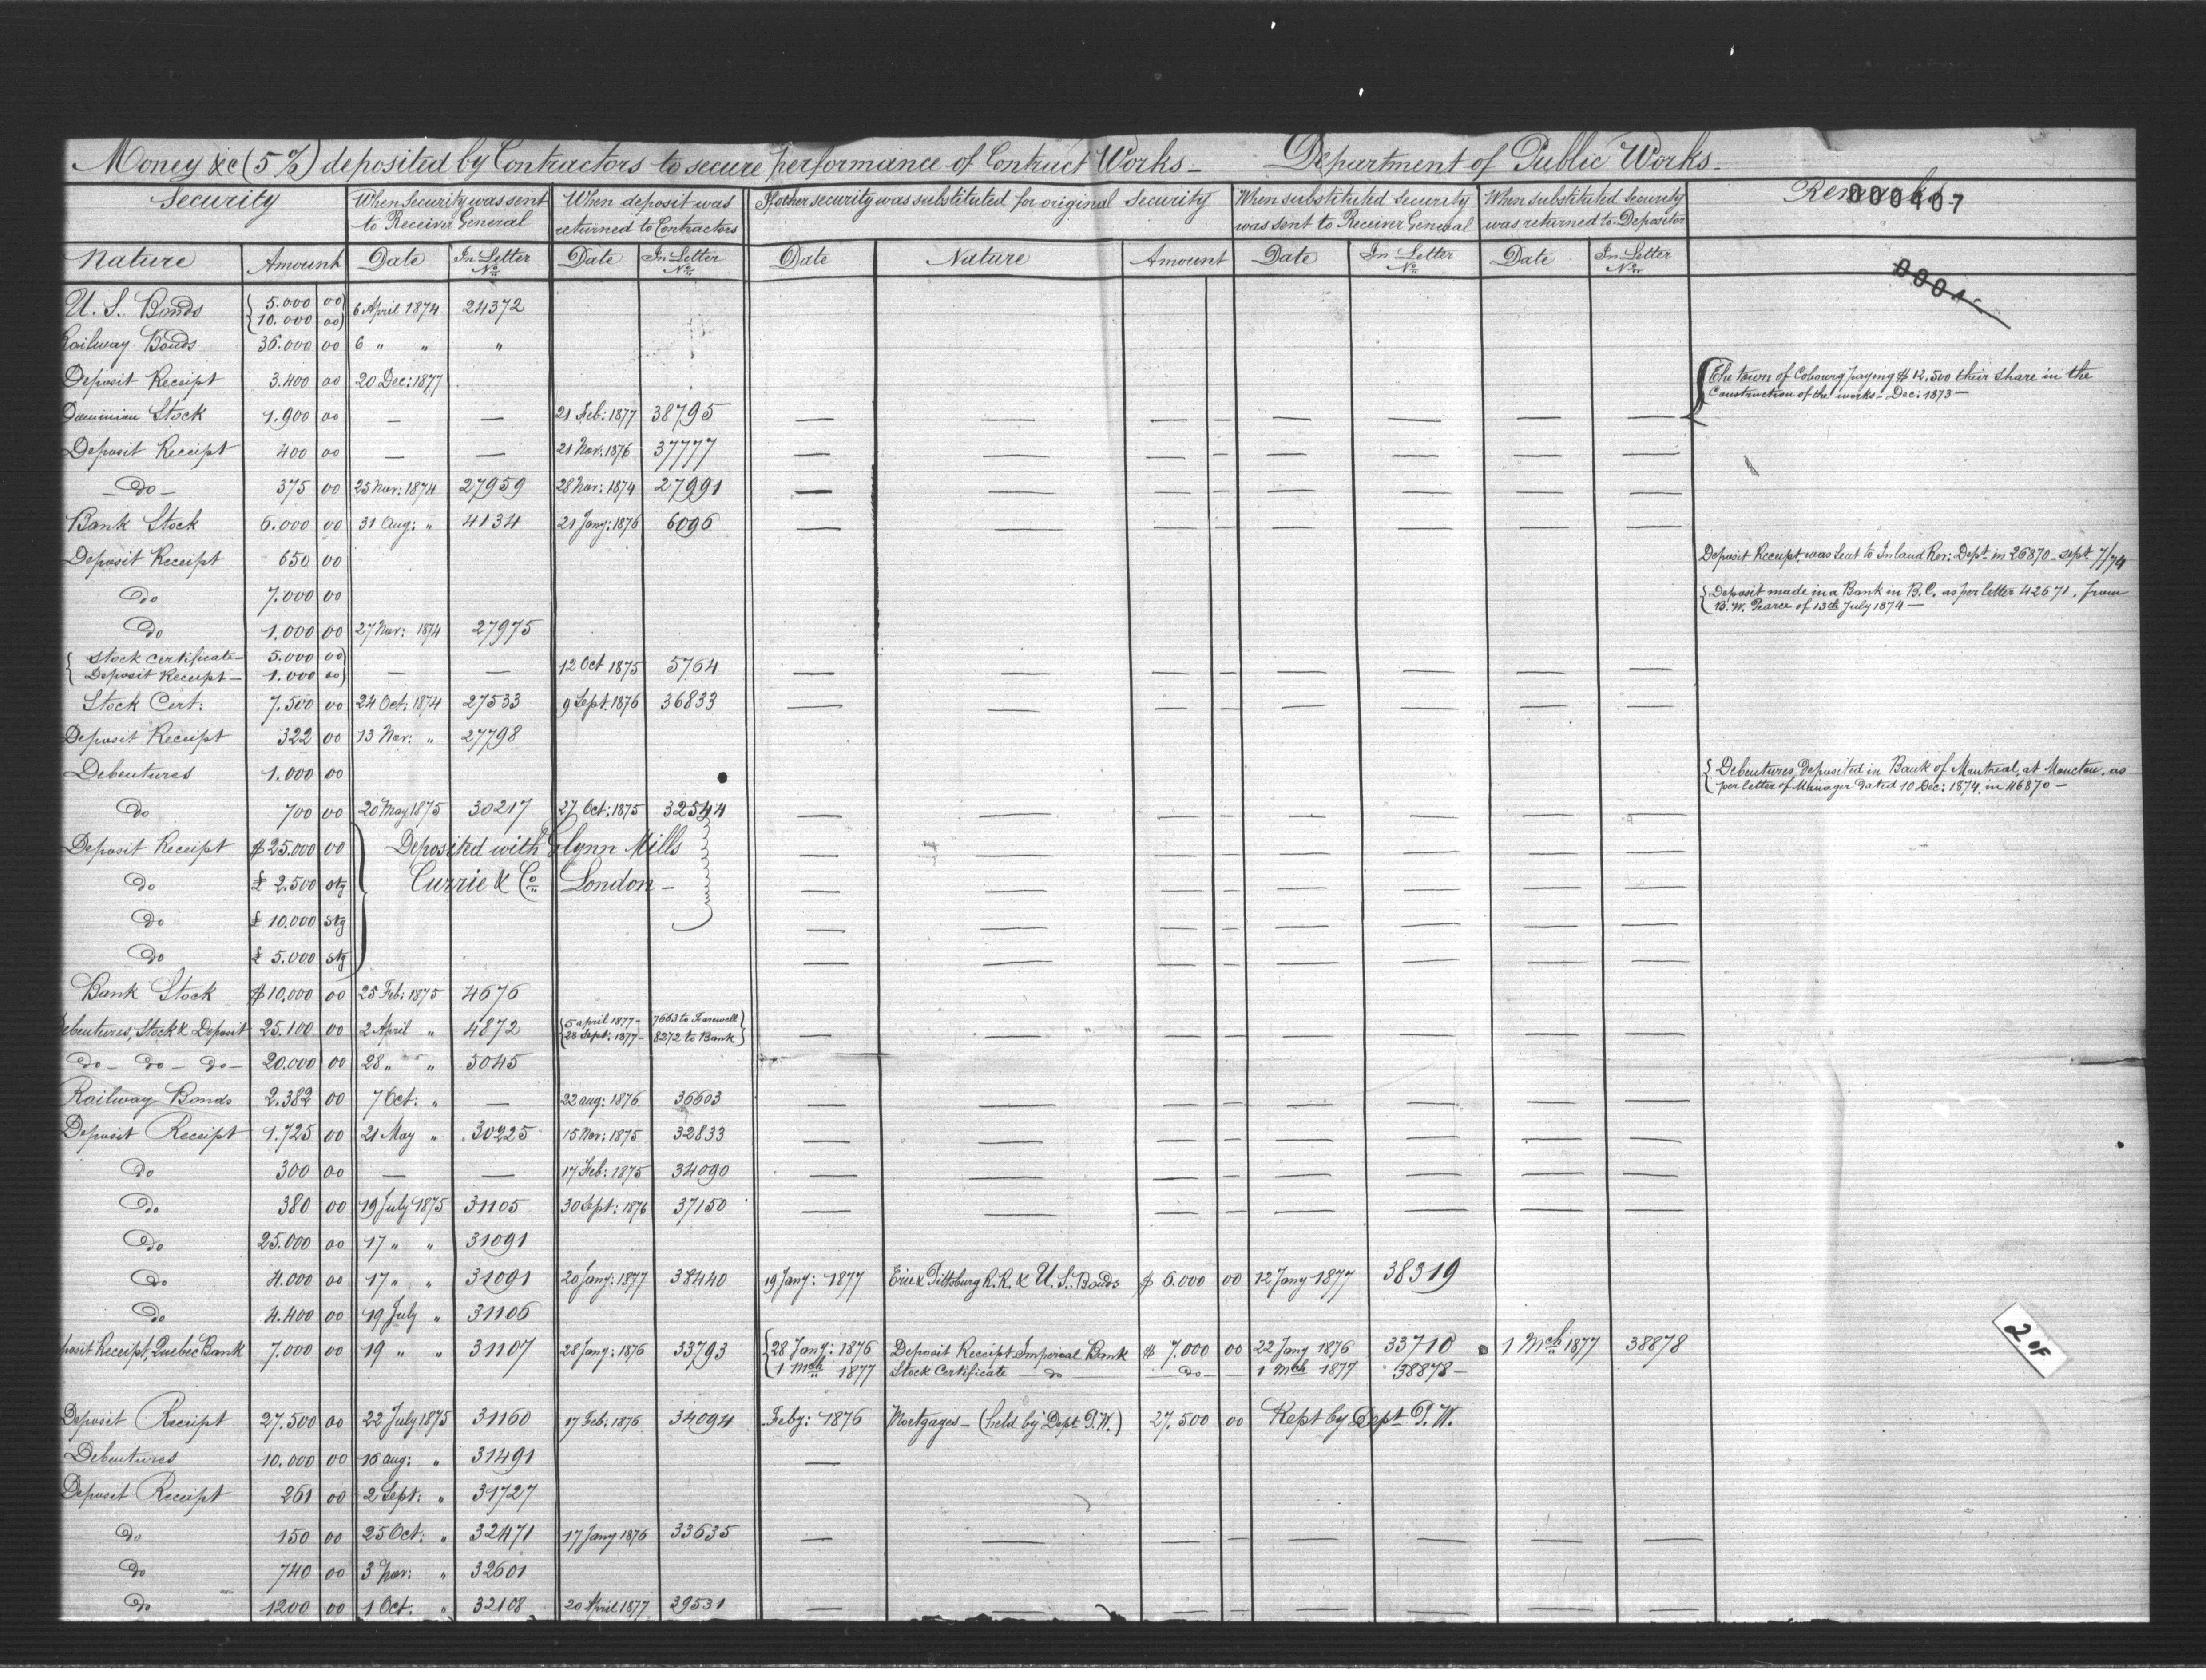 Money &c (5%) deposited by Contractors to secure performance of Contract Works — Department of Public Works —
Security When Security was sent to Receiver General When deposit was returned to Contractors If other security was substituted for original Security When substituted Security was sent to Receiver General When substituted Security was returned to Depositor Remarks 000407
Nature Amount Date In Letter No. Date In Letter No. Date Nature Amount Date In Letter No. Date In Letter No.
U. S. Bonds { 5.000 00 10.000 00 } 6 April 1874 24372
Railway Bonds 36.000 00 6 " " "
Deposit Receipt 3.400 00 20 Dec: 1877 { The town of Cobourg paying $12,500 their share in the
Construction of the works – Dec: 1873 —
Dominion Stock 1.900 00 — — 21 Feb: 1877 38795 — — — — — — — —
Deposit Receipt 400 00 — — 21 Nov: 1876 37777 — — — — — — — —
– Do – 375 00 25 Nov: 1874 27959 28 Nov: 1874 27991 — — — — — — — —
Bank Stock 6.000 00 31 Aug: " 4134 21 Jany: 1876 6096 — — — — — — — —
Deposit Receipt 650 00 Deposit Receipt was sent to Inland Rev: Dept in 26870 – Sept 7/74
Do 7.000 00 { Deposit made in a Bank in B.C. as per letter 42671, from
B. W. Pearce of 13th July 1874 —
Do 1.000 00 27 Nov: 1874 27975
{ Stock certificate – 5.000 00 }
{ Deposit Receipt – 1.000 00 } — — 12 Oct 1875 5764 — — — — — — — —
Stock Cert: 7.500 00 24 Oct: 1874 27533 9 Sept. 1876 36833 — — — — — — — —
Deposit Receipt 322 00 13 Nov: " 27798
Debentures 1.000 00 { Debentures, Deposited in Bank of Montreal, at Moncton, as
per letter of Manager dated 10 Dec: 1874, in 46870 —
Do 700 00 20 May 1875 30217 27 Oct: 1875 32544 — — — — — — — —
Deposit Receipt $ 25.000 00 } Deposited with Glynn Mills — — — — — — — —
Do £ 2.500 stg Currie & Co London – — — — — — — — —
Do £ 10.000 stg — — — — — — — —
Do £ 5.000 stg — — — — — — — —
Bank Stock $ 10,000 00 25 Feb: 1875 4676
Debentures, Stock & Deposit 25.100 00 2 April " 4872 { 5 April 1877 – 7663 to Farewell }
{ 28 Sept: 1877 – 8272 to Bank } — — — — — — — —
Do – Do – Do – 20.000 00 28 " " 5045
Railway Bonds 2.382 00 7 Oct: " — 22 Aug: 1876 36603 — — — — — — — —
Deposit Receipt 1.725 00 21 May " 30225 15 Nov: 1875 32833 — — — — — — — —
Do 300 00 — — 17 Feb: 1875 34090 — — — — — — — —
Do 380 00 19 July 1875 31105 30 Sept: 1876 37150 — — — — — — — —
Do 25.000 00 17 " " 31091
Do 4.000 00 17 " " 31091 20 Jany: 1877 38440 19 Jany: 1877 Erie & Pittsburg R.R. & U. S. Bonds $ 6.000 00 12 Jany 1877 38319
Do 4.400 00 19 July " 31106
posit Receipt, Quebec Bank 7.000 00 19 " " 31107 28 Jany: 1876 33793 { 28 Jany: 1876 Deposit Receipt Imperial Bank $ 7.000 00 22 Jany 1876 33710 1 Mch 1877 38878
{ 1 Mch 1877 Stock Certificate — do — — do — 1 Mch 1877 38878 –
2 OF
Deposit Receipt 27.500 00 22 July 1875 31160 17 Feb: 1876 34094 Feby: 1876 Mortgages – (held by Dept P.W.) 27.500 00 Kept by Dept P. W.
Debentures 10.000 00 16 Aug: " 31491 —
Deposit Receipt 261 00 2 Sept: " 31727
Do 150 00 25 Oct: " 32471 17 Jany 1876 33635 — — — — — — — —
Do 740 00 3 Nov: " 32601
Do 1200 00 1 Oct. " 32108 20 April 1877 39531 — — — — — — — —